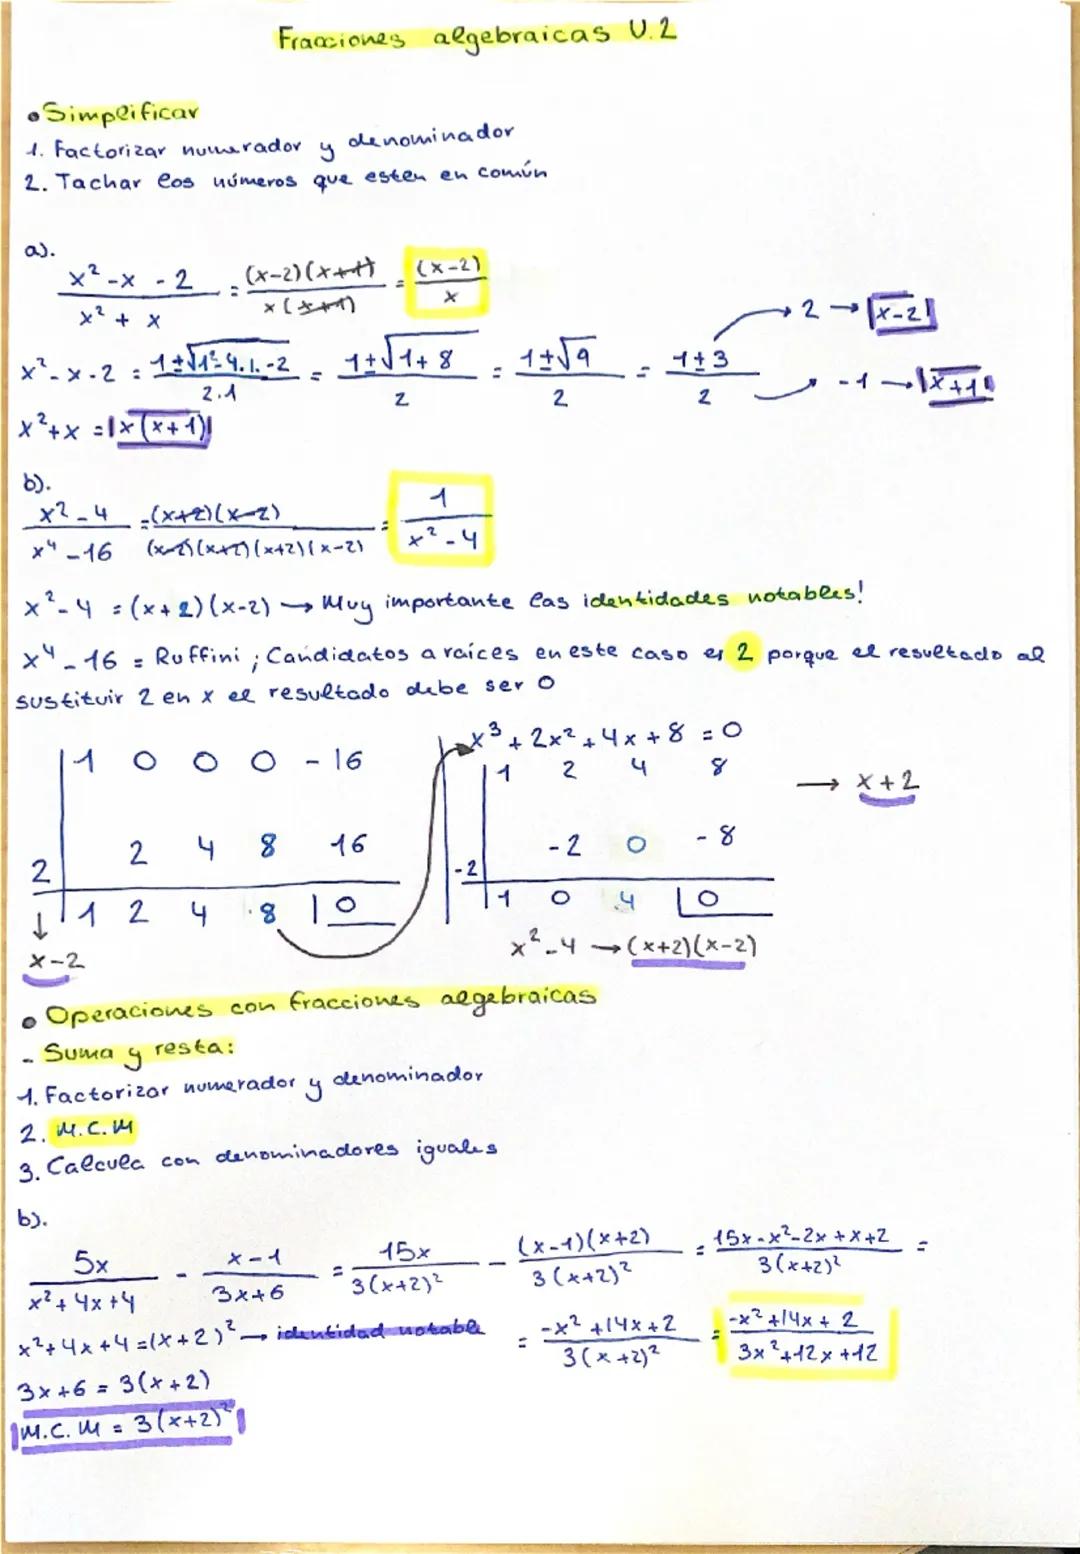 Fracciones algebraicas U.2
• Simplificar
1. Factorizar numerador y denominador
2. Tachar los números que esten en común
a).
(x² - x - 2)/(x² + x) = ((x-2)(x+1))/(x(x+1)) = (x-2)/x
x² - x - 2 = (1±√1²-4.1.-2)/(2.1) = (1±√1+8)/2 = (1±√9)/2 = (1±3)/2 → 2 → x-2
→ -1 → x+1
x²+x = x(x+1)
b).
(x²-4)/(x⁴-16) = ((x+2)(x-2))/((x-2)(x+2)(x+2)(x-2)) = 1/(x²-4)
x²-4 = (x+2)(x-2) → Muy importante las identidades notables!
x⁴-16 = Ruffini ; Candidatos a raíces en este caso es 2 porque el resultado al
sustituir 2 en x el resultado debe ser 0
1 0 0 0 -16
2 4 8 16
2
1 2 4 8 0
↓
x-2
x³ + 2x² + 4x + 8 = 0
1 2 4 8 → x+2
-2 0 -8
-2
1 0 4 0
x²-4 → (x+2)(x-2)
• Operaciones con fracciones algebraicas
- Suma y resta:
1. Factorizar numerador y denominador
2. M.C.M
3. Calcula con denominadores iguales
b).
5x/(x²+4x+4) - (x-1)/(3x+6) = 15x/(3(x+2)²) - ((x-1)(x+2))/(3(x+2)²) = (15x-x²-2x+x+2)/(3(x+2)²) =
x²+4x+4 = (x+2)² → identidad notable
= (-x²+14x+2)/(3(x+2)²) = (-x²+14x+2)/(3x²+12x+12)
3x+6 = 3(x+2)
M.C.M = 3(x+2)²